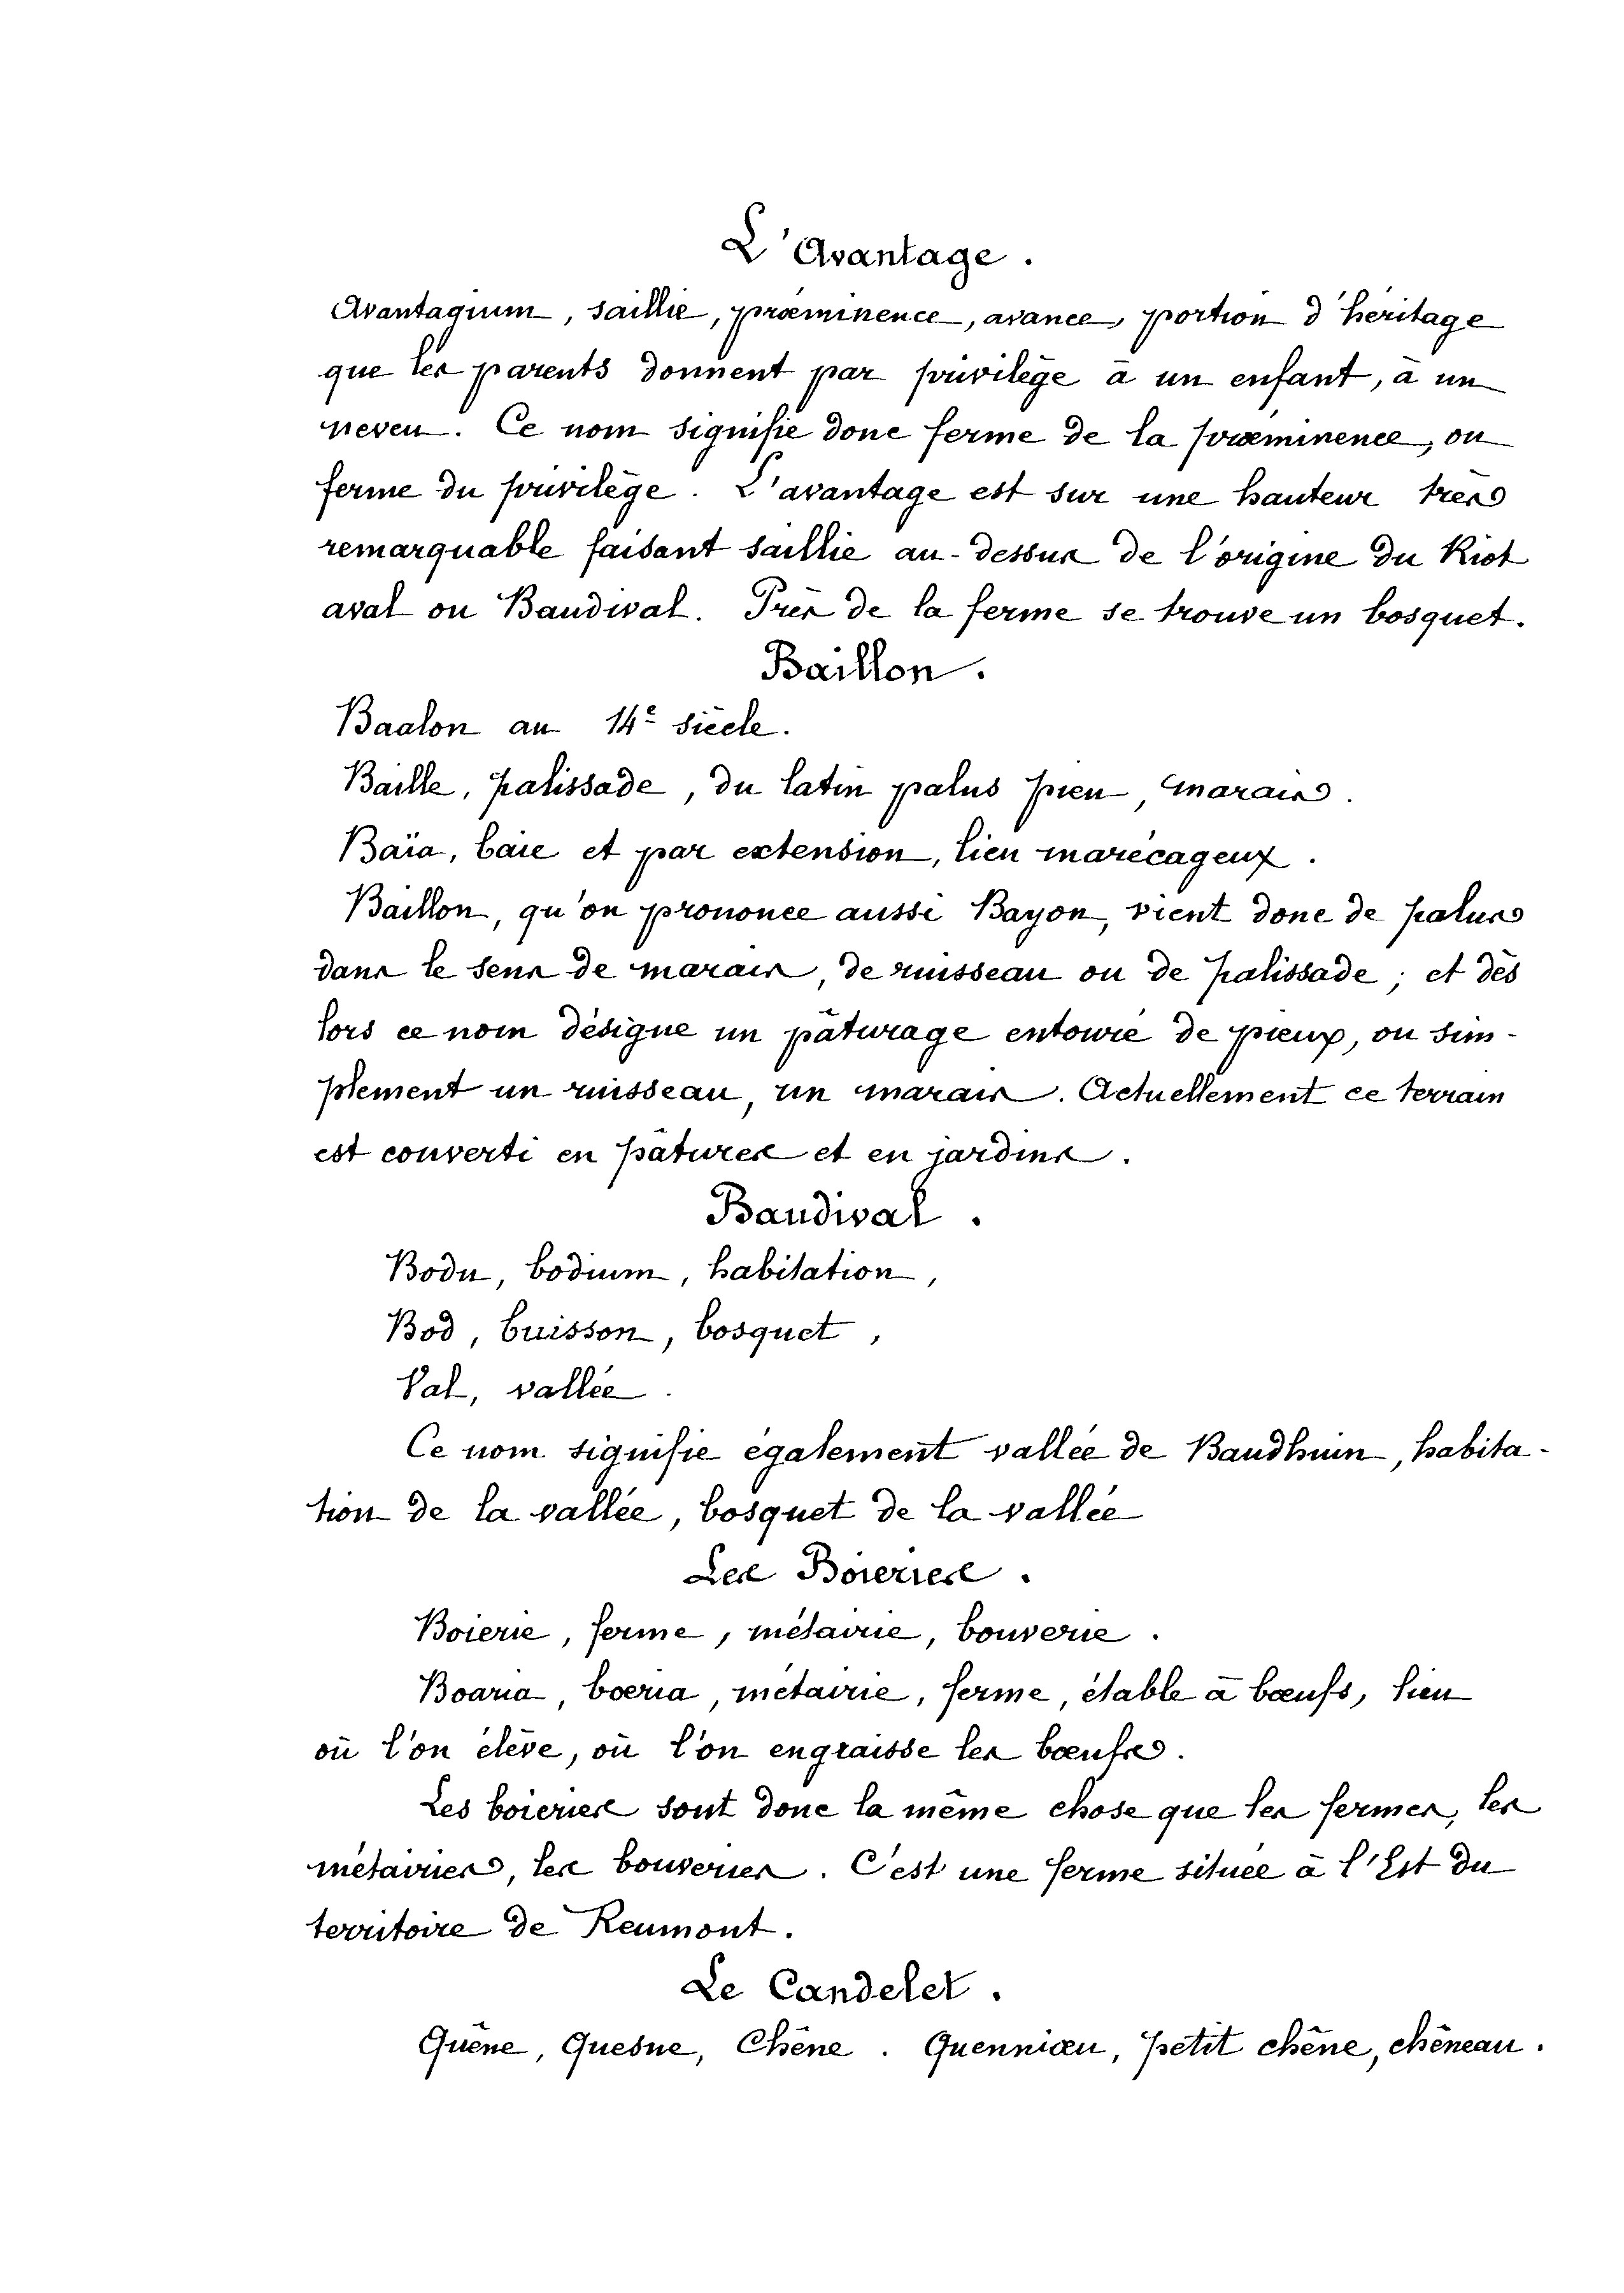 L'Avantage.
Avantagium, saillie, prœminence, avance, portion d'héritage
que les parents donnent par privilège à un enfant, à un
neveu. Ce nom signifie donc ferme de la prœminence, ou
ferme du privilège. L'avantage est sur une hauteur très
remarquable faisant saillie au-dessus de l'origine du Riot
aval ou Baudival. Près de la ferme se trouve un bosquet.
Baillon.
Baalon au 14e siècle.
Baille, palissade, du latin palus pieu, marais.
Baïa, baie et par extension, lieu marécageux.
Baillon, qu'on prononce aussi Bayon, vient donc de palus
dans le sens de marais, de ruisseau ou de palissade; et dès
lors ce nom désigne un pâturage entouré de pieux, ou sim-
plement un ruisseau, un marais. Actuellement ce terrain
est converti en pâtures et en jardins.
Baudival.
Bodu, bodium, habitation,
Bod, buisson, bosquet,
Val, vallée.
Ce nom signifie également vallée de Baudhuin, habita-
tion de la vallée, bosquet de la vallée
Les Boieries.
Boierie, ferme, métairie, bouverie.
Boaria, boeria, métairie, ferme, étable à bœufs, lieu
où l'on élève, où l'on engraisse les bœufs.
Les boieries sont donc la même chose que les fermes, les
métairies, les bouveries. C'est une ferme située à l'Est du
territoire de Reumont.
Le Candelet.
Quêne, Quesne, Chêne. Quenniœu, petit chêne, chêneau.